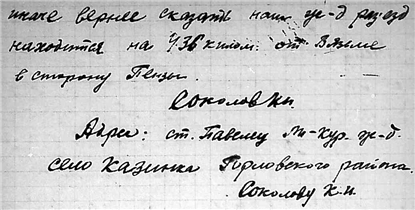 иначе вернее сказать наш ж-д разъезд
находится на 436 килом. от Вязме
в сторону Пензы.
Соколов Ки.
Адрес: ст. Павелец М-Кур. ж-д.
село Казинка Горловского района.
Соколову К.И.